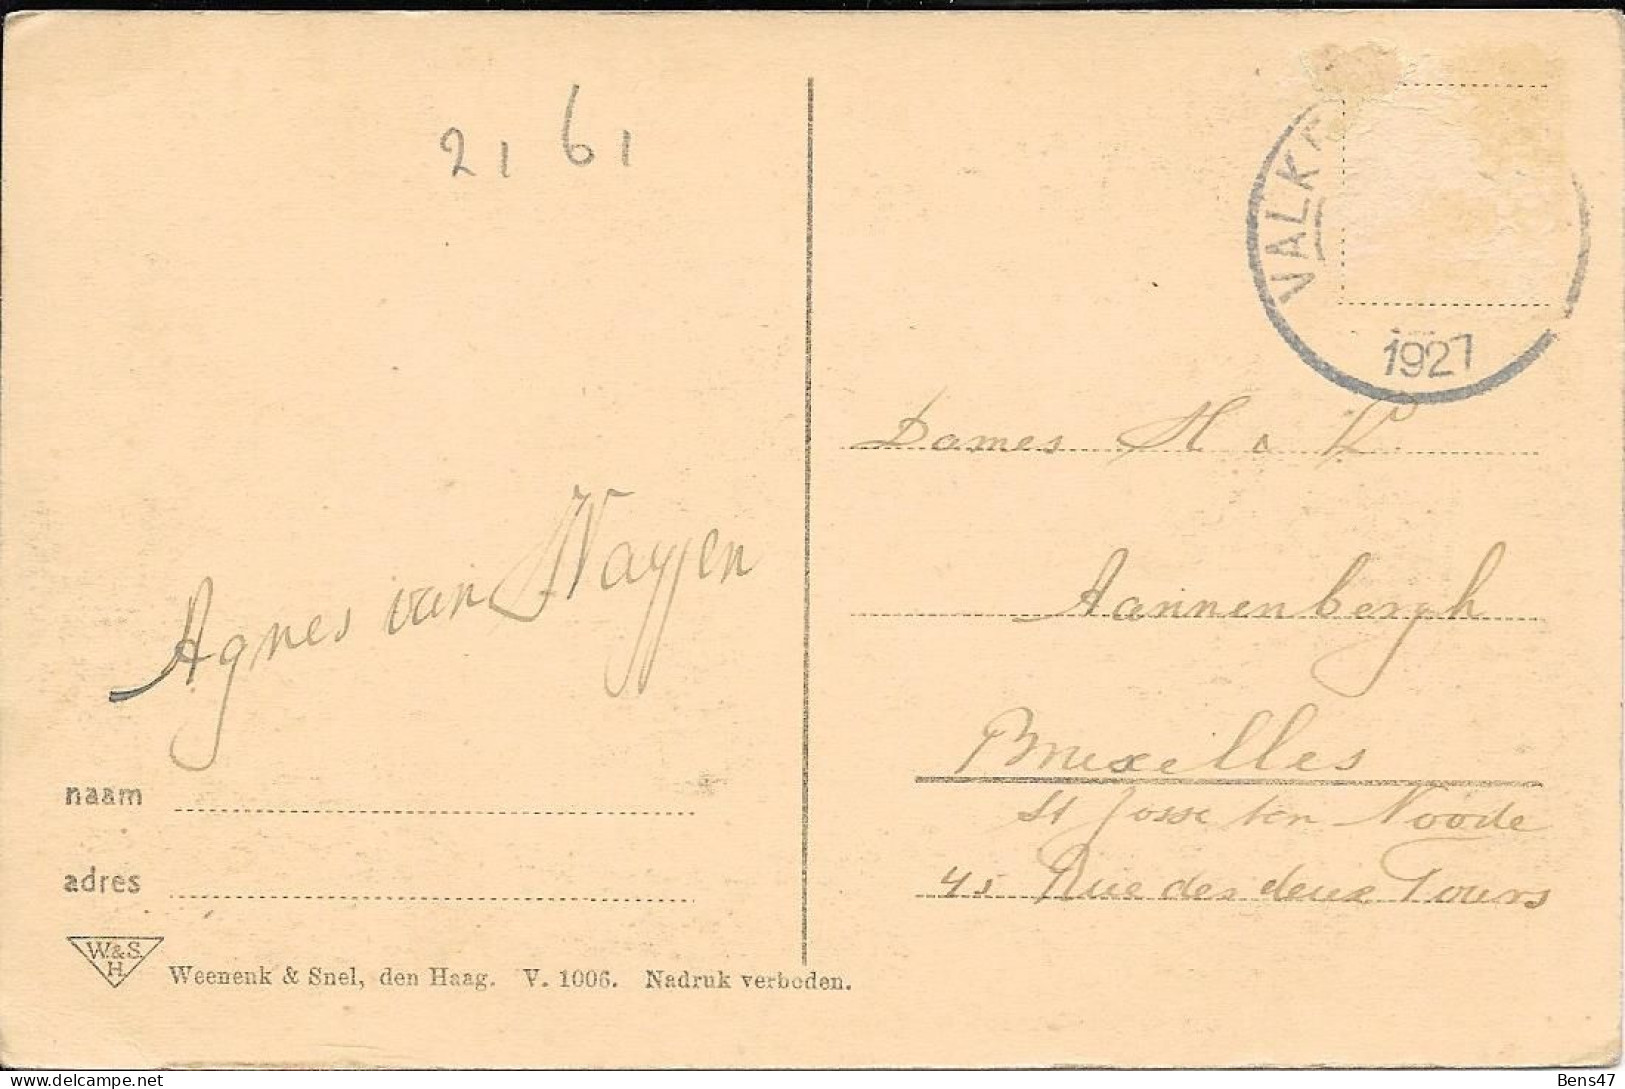 21 61
VALK
1927
Dames H & V
Aannenbergh
Bruxelles
St Josse ten Noode
45 Rue des deux Tours
Agnes van
naam
adres
W.&S.
H.
Weenenk & Snel, den Haag. V. 1006. Nadruk verboden.
Bens47